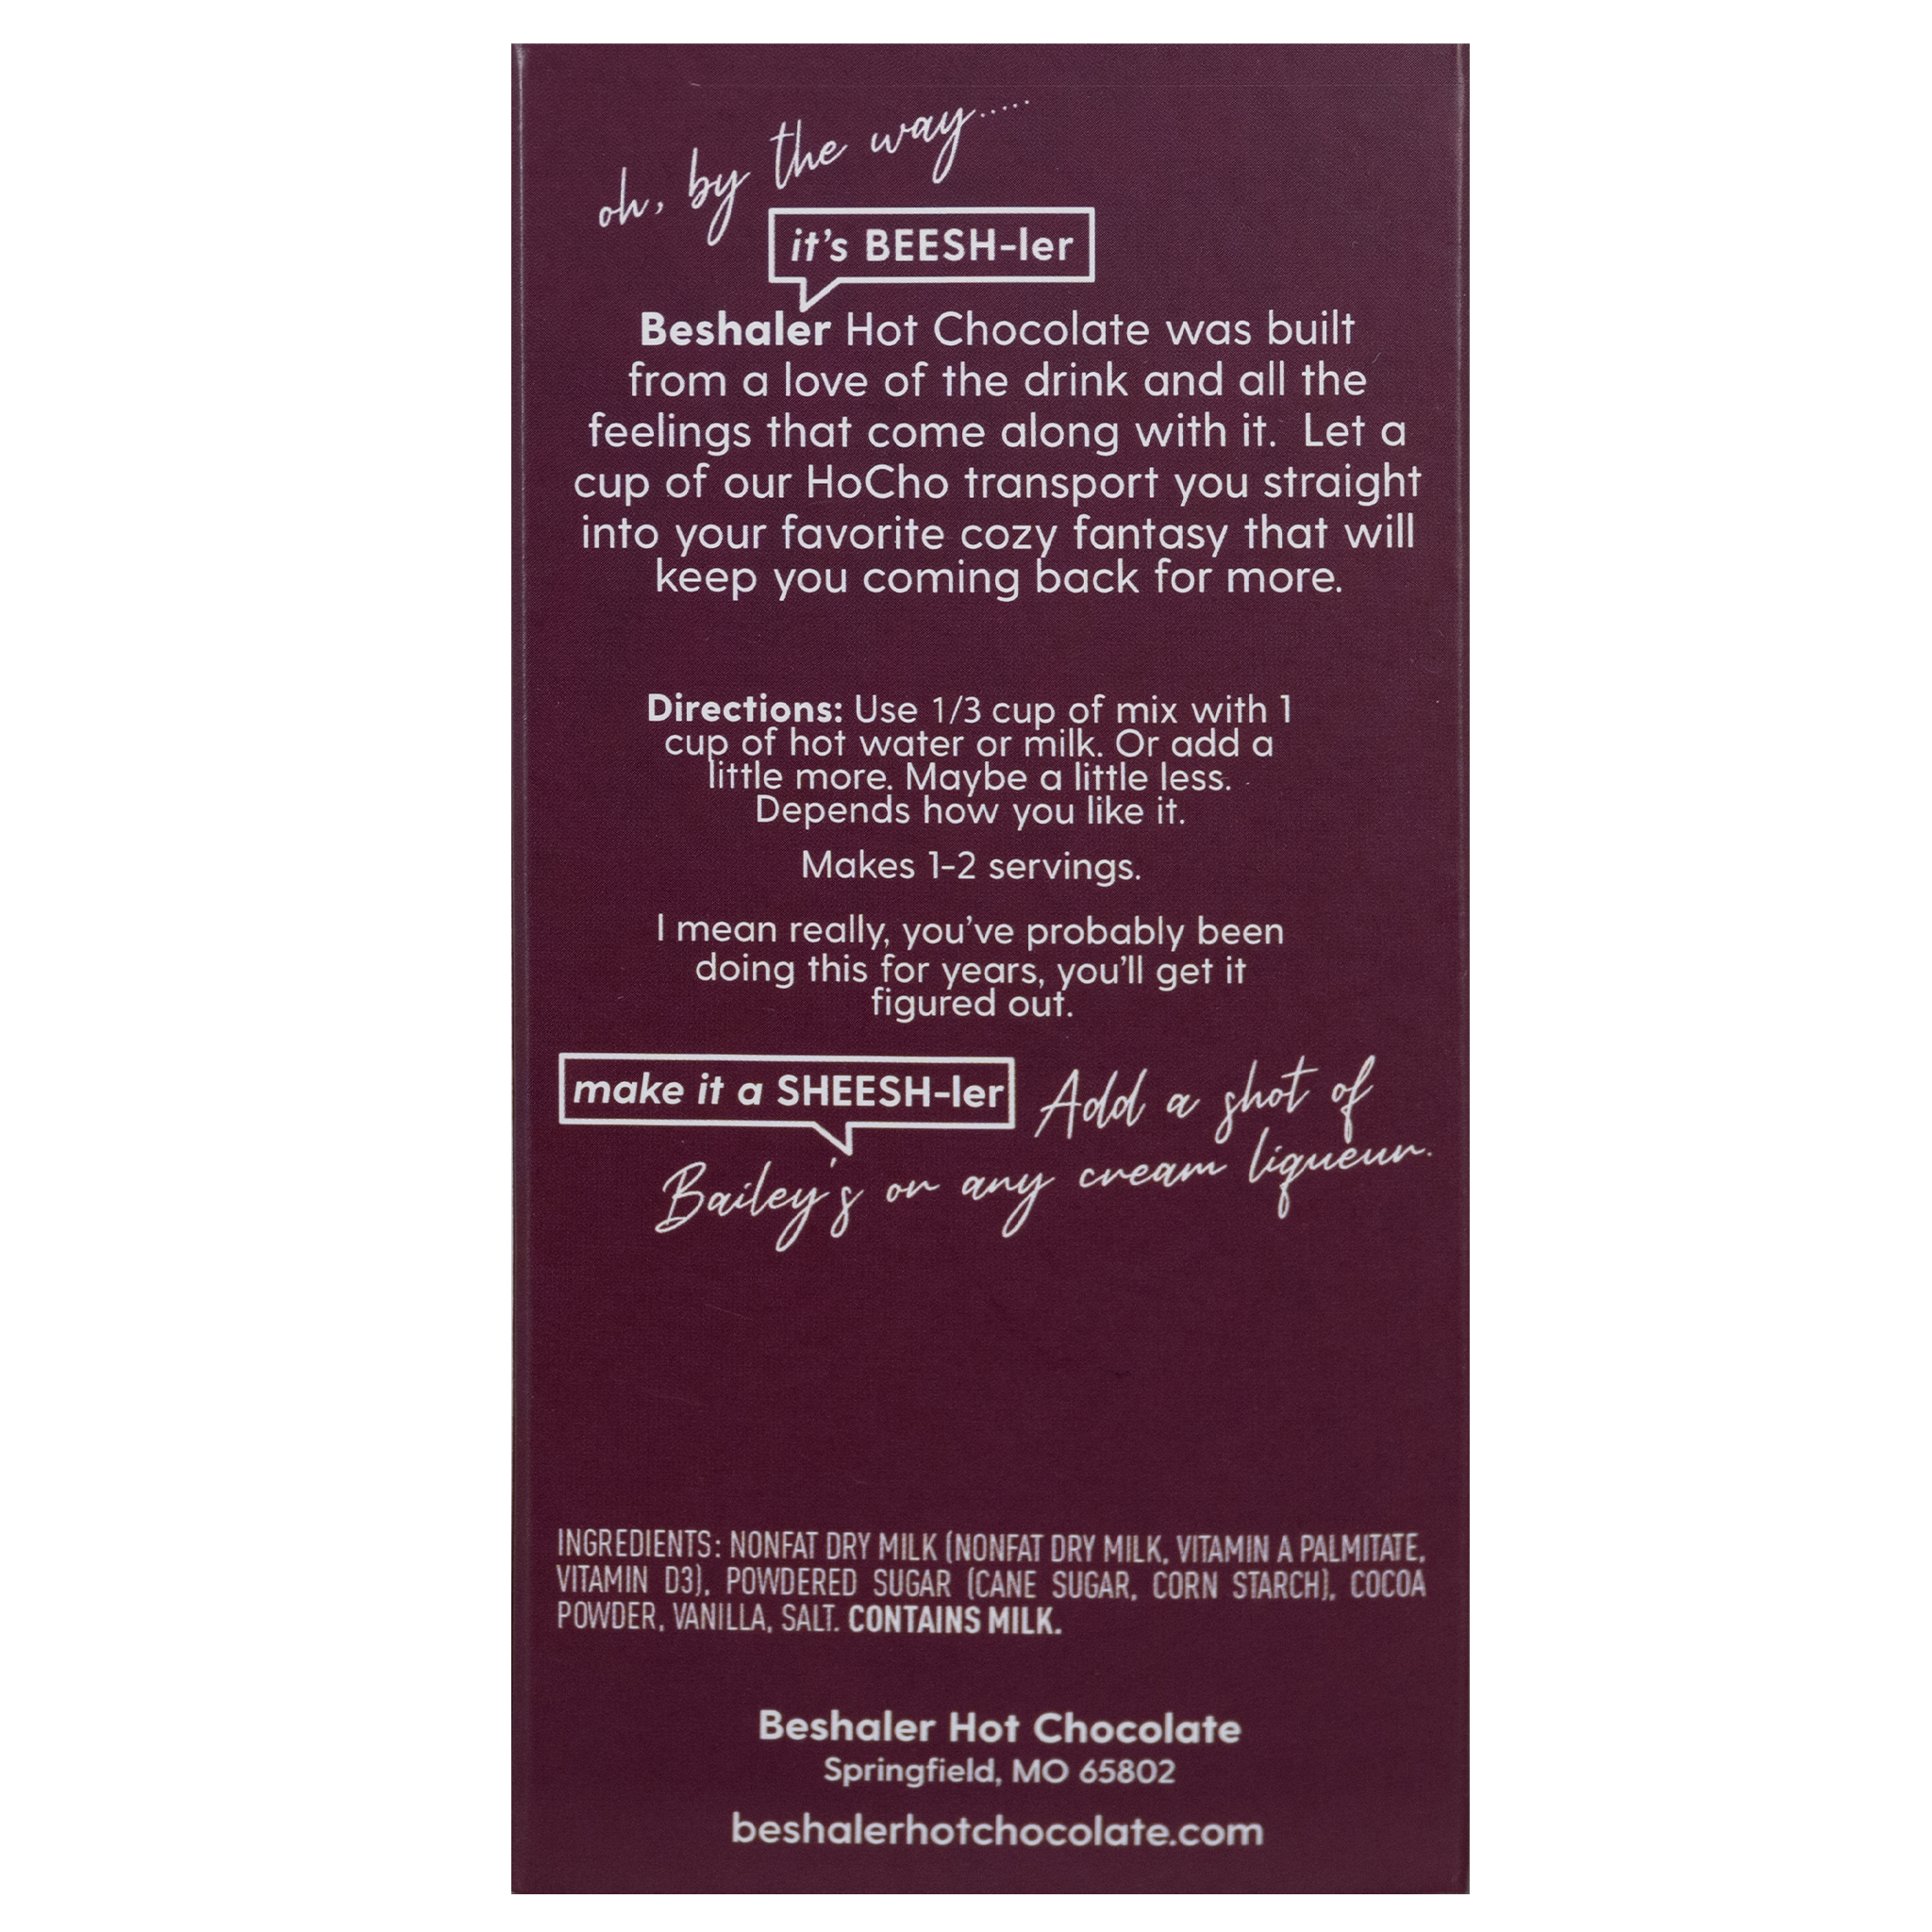 oh, by the way.....
it's BEESH-ler
Beshaler Hot Chocolate was built
from a love of the drink and all the
feelings that come along with it. Let a
cup of our HoCho transport you straight
into your favorite cozy fantasy that will
keep you coming back for more.
Directions: Use 1/3 cup of mix with 1
cup of hot water or milk. Or add a
little more. Maybe a little less.
Depends how you like it.
Makes 1-2 servings.
I mean really, you've probably been
doing this for years, you'll get it
figured out.
make it a SHEESH-ler Add a shot of
Bailey's or any cream liqueur.
INGREDIENTS: NONFAT DRY MILK (NONFAT DRY MILK, VITAMIN A PALMITATE,
VITAMIN D3), POWDERED SUGAR (CANE SUGAR, CORN STARCH), COCOA
POWDER, VANILLA, SALT. CONTAINS MILK.
Beshaler Hot Chocolate
Springfield, MO 65802
beshalerhotchocolate.com